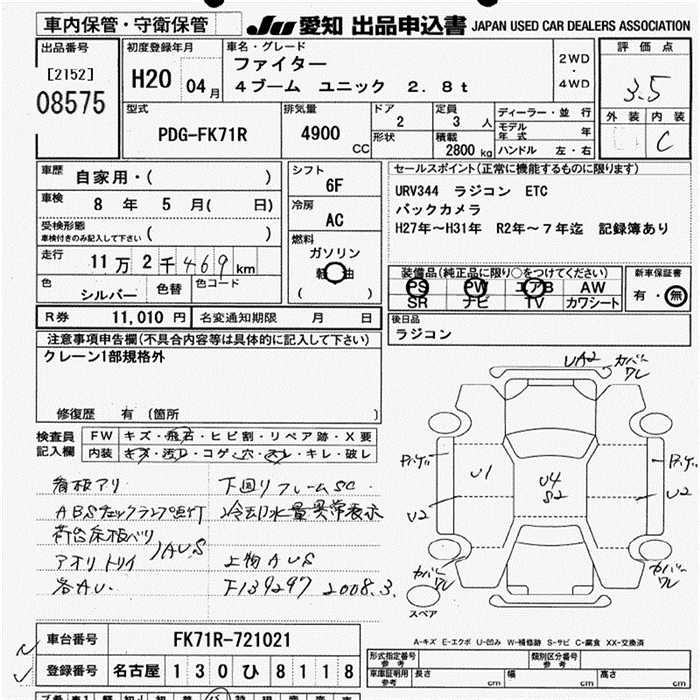 車内保管・守衛保管
JU 愛知 出品申込書 JAPAN USED CAR DEALERS ASSOCIATION
出品番号
[2152]
08575
初度登録年月
H20 04月
車名・グレード
ファイター
4ブーム ユニック 2.8t
2WD
・
4WD
評価点
3.5
外装 内装
C
型式
PDG-FK71R
排気量
4900 CC
ドア
2
形状
定員
3人
積載
2800 kg
ディーラー・並行
モデル年式 年
ハンドル 左・右
車歴
自家用・( )
車検
8年 5月( 日)
受検形態
車検付きのみ記入して下さい ( )
走行
11万2千469km
色
シルバー
色替
色コード
シフト
6F
冷房
AC
燃料
ガソリン
軽油
( )
セールスポイント(正常に機能するものに限ります)
URV344 ラジコン ETC
バックカメラ
H27年~H31年 R2年~7年迄 記録簿あり
装備品(純正品に限り○をつけてください)
PS PW エアB AW
SR ナビ TV カワシート
新車保証書
有・無
R券 11,010円
名変通知期限 月 日
後日品
ラジコン
注意事項申告欄(不具合内容等は具体的に記入して下さい)
クレーン1部規格外
修復歴 有(箇所 )
検査員記入欄
FW キズ・飛石・ヒビ割・リペア跡・X要
内装 キズ・汚れ・コゲ・穴・スレ・キレ・破レ
看板アリ
ABSチェックランプ点灯
荷台床板ベリ
アオリ トリイ
)AUS
各AU.
下回リフレームSC
冷却水量異常表示
上物AUS
F139297 2008.3.
UA2
カバーワレ
U1
U4
S2
U2
U2
カバーワレ
カバーワレ
スペア
A-キズ E-エクボ U-凹み W-補修跡 S-サビ C-腐食 XX-交換済
車台番号 FK71R-721021
登録番号 名古屋 130 ひ 8118
形式指定番号
参考
類別区分番号
参考
車庫証明用
参考
長さ cm
幅 cm
高さ cm